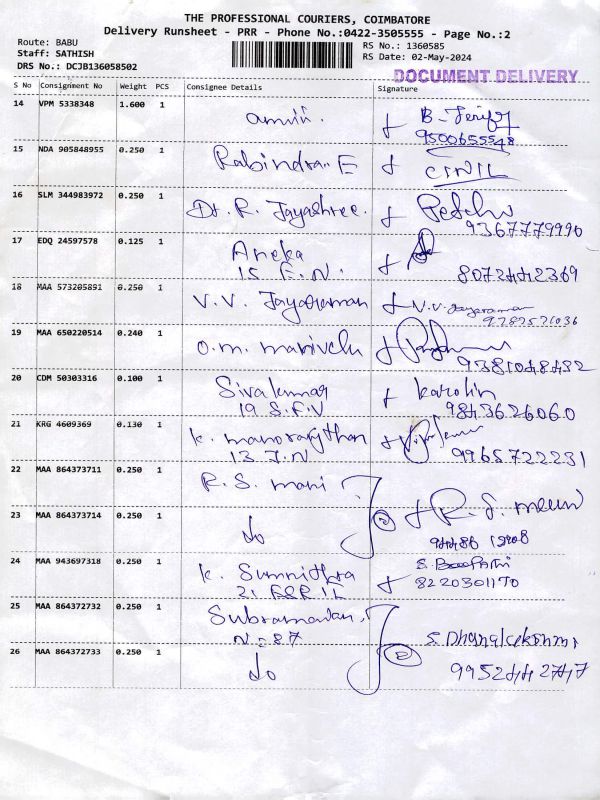 THE PROFESSIONAL COURIERS, COIMBATORE
Delivery Runsheet - PRR - Phone No.:0422-3505555 - Page No.:2
Route: BABU
Staff: SATHISH
DRS No.: DCJB136058502
RS No.: 1360585
RS Date: 02-May-2024
DOCUMENT DELIVERY
S No Consignment No Weight PCS Consignee Details Signature
14 VPM 5338348 1.600 1
9500655548
15 NDA 905848955 0.250 1 Rabindra. E
16 SLM 344983972 0.250 1 Dr. R. Jayashree.
9367779990
17 EDQ 24597578 0.125 1 Aneka
15 F.N. 8072442369
18 MAA 573205891 0.250 1 V.V. Jayaraman V.V. Jayaraman
19 MAA 650220514 0.240 1 O.m. manivelu
9381048432
20 CDM 50303316 0.100 1 Sivakumar karolin
19 S.F.V 9843626060
21 KRG 4609369 0.130 1 K. manoranjithan
13 J.N 9965722231
22 MAA 864373711 0.250 1 R.S. mani
23 MAA 864373714 0.250 1 do
24 MAA 943697318 0.250 1 K. Sumnithra
8220301170
25 MAA 864372732 0.250 1 Subramanian.
N-87 S. Dhanalakshmi
26 MAA 864372733 0.250 1 do
9952442747